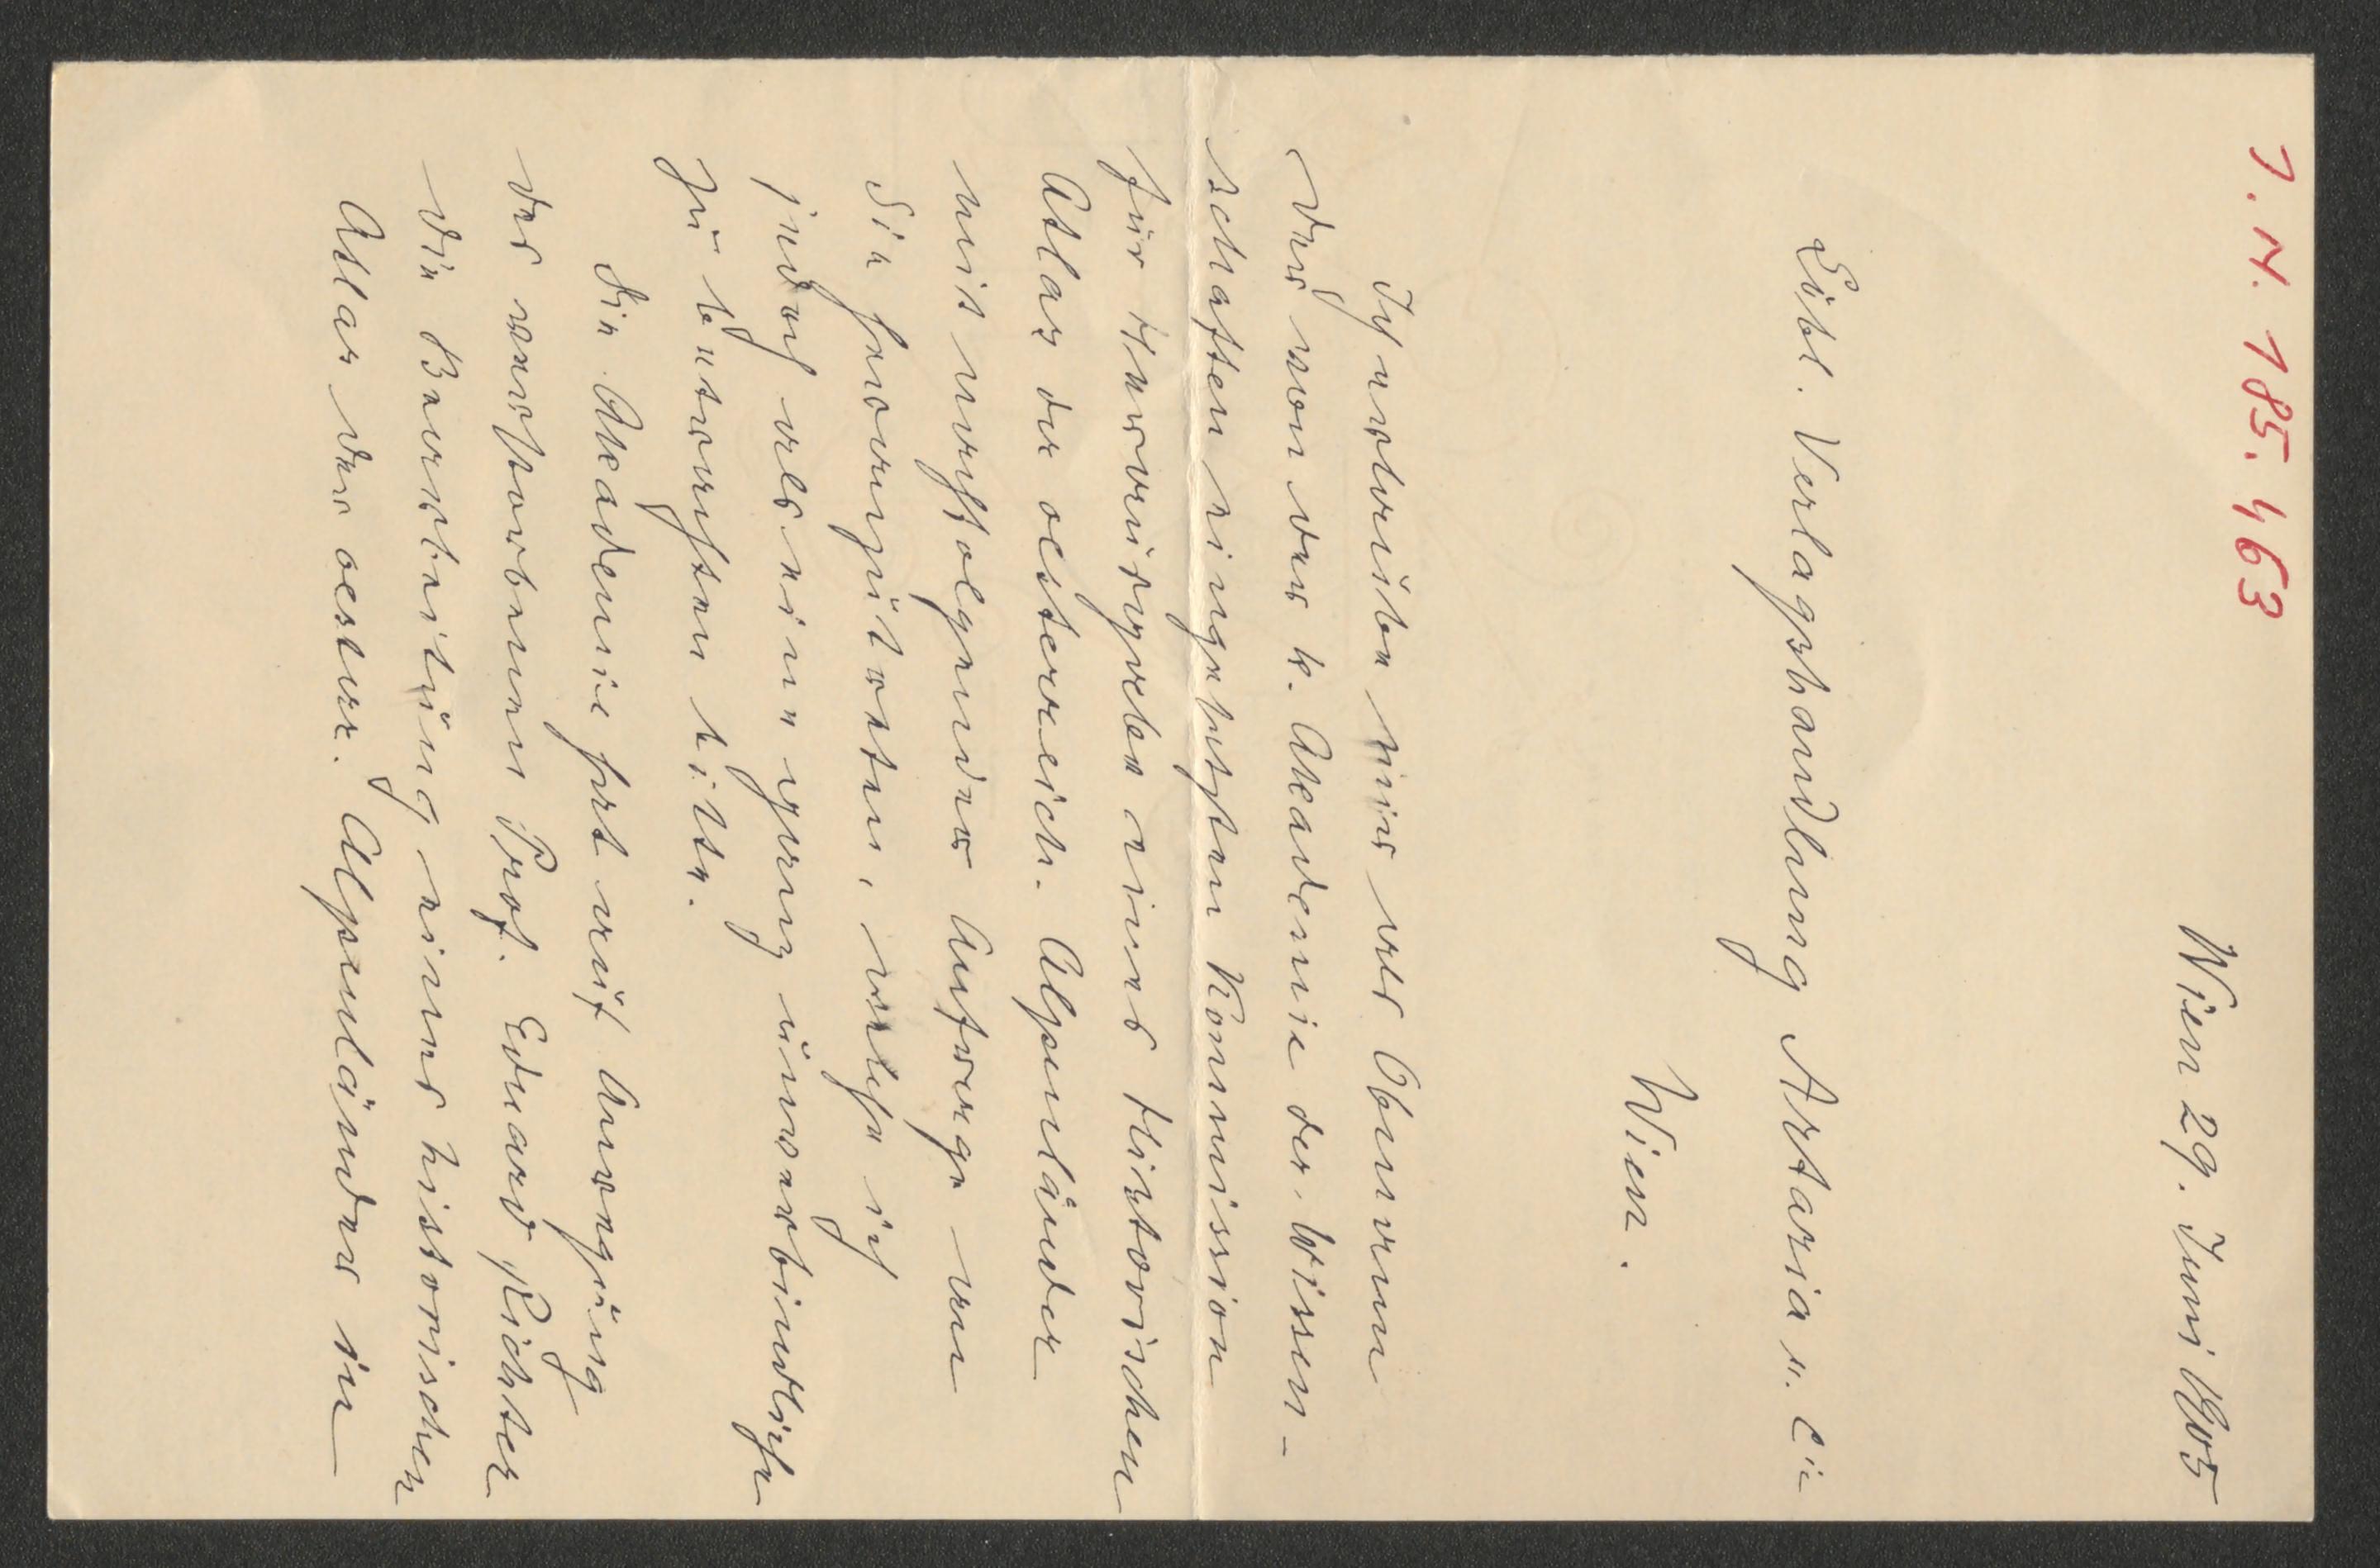 I. N. 185.463
Wien 29. Juni 1905
Löbl. Verlagshandlung Artaria u. Cie
Wien.
Ich erlaube mir als Obmann
der von der k. Akademie der Wissen-
schaften eingesetzten Kommission
für Herausgabe eines Historischen
Atlas der österreich. Alpenländer
mit nachfolgender Anfrage an
Sie heranzutreten, welche ich
jedoch als eine ganz unverbindliche
zu betrachten bitte.
Die Akademie hat auf Anregung
des verstorbenen Prof. Eduard Richter
die Bearbeitung eines historischen
Atlas der oesterr. Alpenländer in